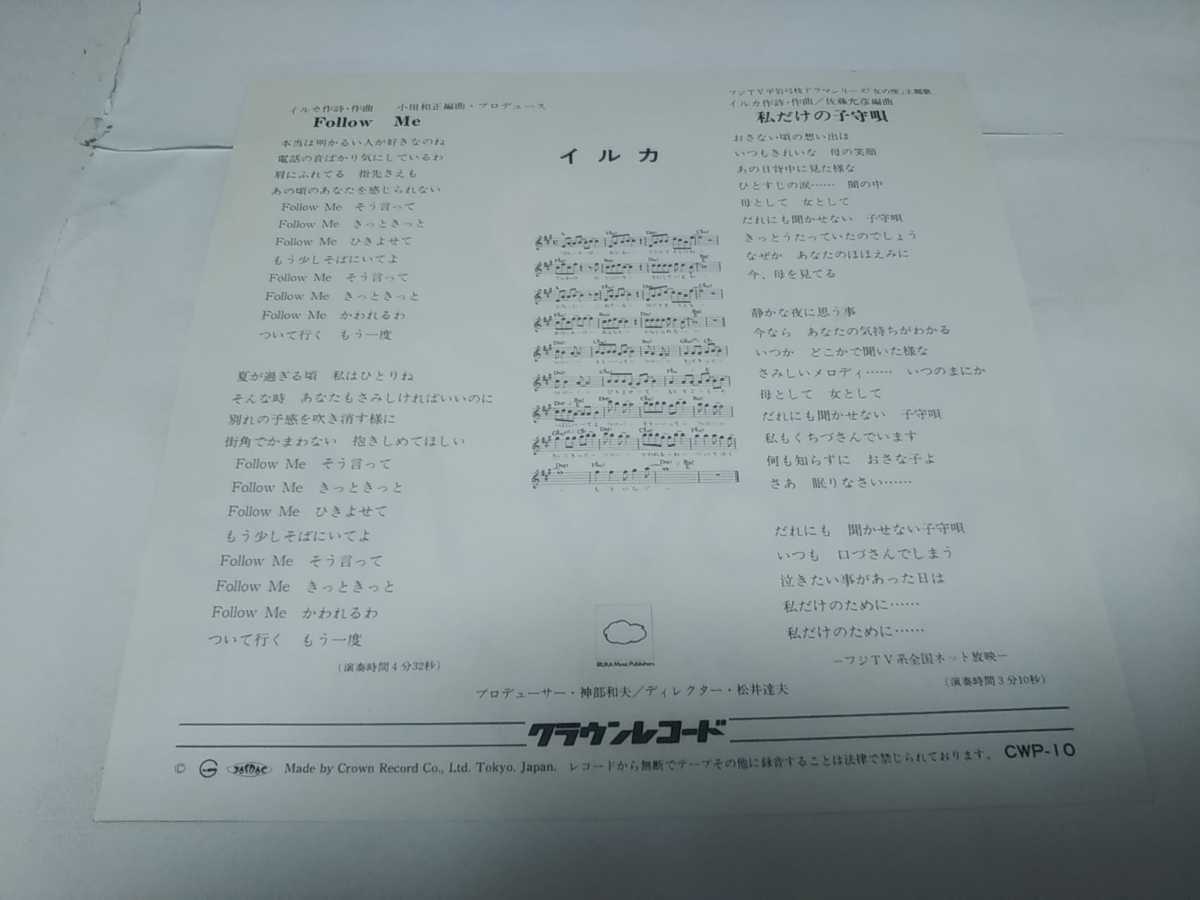 イルカ作詩・作曲　小田和正編曲・プロデュース
Follow Me
本当は明かるい人が好きなのね
電話の音ばかり気にしているわ
肩にふれてる　指先さえも
あの頃のあなたを感じられない
Follow Me　そう言って
Follow Me　きっときっと
Follow Me　ひきよせて
もう少しそばにいてよ
Follow Me　そう言って
Follow Me　きっときっと
Follow Me　かわれるわ
ついて行く　もう一度
夏が過ぎる頃　私はひとりね
そんな時　あなたもさみしければいいのに
別れの予感を吹き消す様に
街角でかまわない　抱きしめてほしい
Follow Me　そう言って
Follow Me　きっときっと
Follow Me　ひきよせて
もう少しそばにいてよ
Follow Me　そう言って
Follow Me　きっときっと
Follow Me　かわれるわ
ついて行く　もう一度
(演奏時間4分32秒)
イルカ
フジTV平岩弓枝ドラマシリーズ「女の座」主題歌
イルカ作詩・作曲／佐藤允彦編曲
私だけの子守唄
おさない頃の想い出は
いつもきれいな　母の笑顔
あの日背中に見た様な
ひとすじの涙……　闇の中
母として　女として
だれにも聞かせない　子守唄
きっとうたっていたのでしょう
なぜか　あなたのほほえみに
今、母を見てる
静かな夜に思う事
今なら　あなたの気持ちがわかる
いつか　どこかで聞いた様な
さみしいメロディ……　いつのまにか
母として　女として
だれにも聞かせない　子守唄
私もくちづさんでいます
何も知らずに　おさな子よ
さあ　眠りなさい……
だれにも　聞かせない子守唄
いつも　口づさんでしまう
泣きたい事があった日は
私だけのために……
私だけのために……
−フジTV系全国ネット放映−
(演奏時間3分10秒)
IRUKA Music Publishers
プロデューサー・神部和夫／ディレクター・松井達夫
クラウンレコード
© JASRAC Made by Crown Record Co., Ltd. Tokyo. Japan.　レコードから無断でテープその他に録音することは法律で禁じられております。 CWP-10